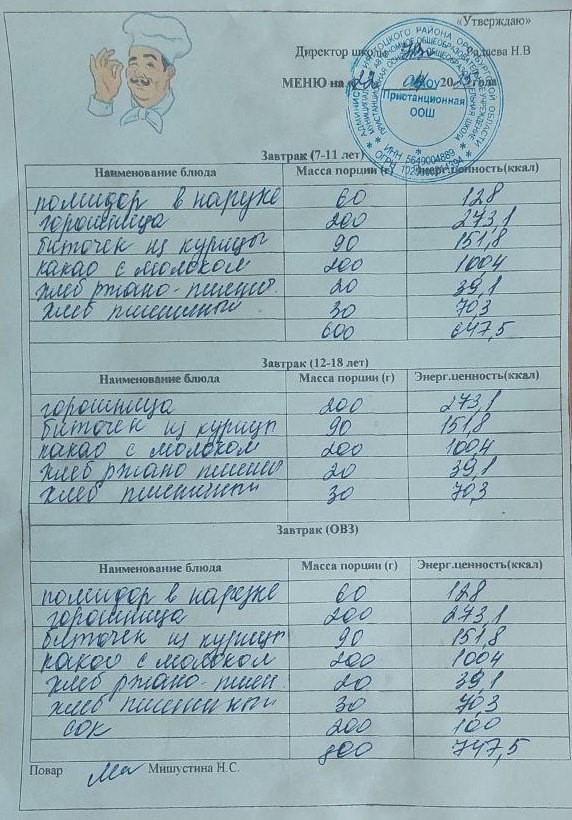 «Утверждаю»
Директор школы Фадаева Н.В
МЕНЮ на «22» 04 2025 года
Пристанционная
ООШ
ИНН 5649004889
Завтрак (7-11 лет)
Наименование блюда Масса порции (г) Энерг.ценность(ккал)
помидор в нарезке 60 12,8
горошница 200 273,1
биточек из курицы 90 151,8
какао с молоком 200 100,4
хлеб ржано-пшенич 20 39,1
хлеб пшеничный 30 70,3
600 647,5
Завтрак (12-18 лет)
Наименование блюда Масса порции (г) Энерг.ценность(ккал)
горошница 200 273,1
биточек из курицы 90 151,8
какао с молоком 200 100,4
хлеб ржано пшенич 20 39,1
хлеб пшеничный 30 70,3
Завтрак (ОВЗ)
Наименование блюда Масса порции (г) Энерг.ценность(ккал)
помидор в нарезке 60 12,8
горошница 200 273,1
биточек из курицы 90 151,8
какао с молоком 200 100,4
хлеб ржано-пшен 20 39,1
хлеб пшеничный 30 70,3
сок 200 100
800 747,5
Повар Мишустина Н.С.